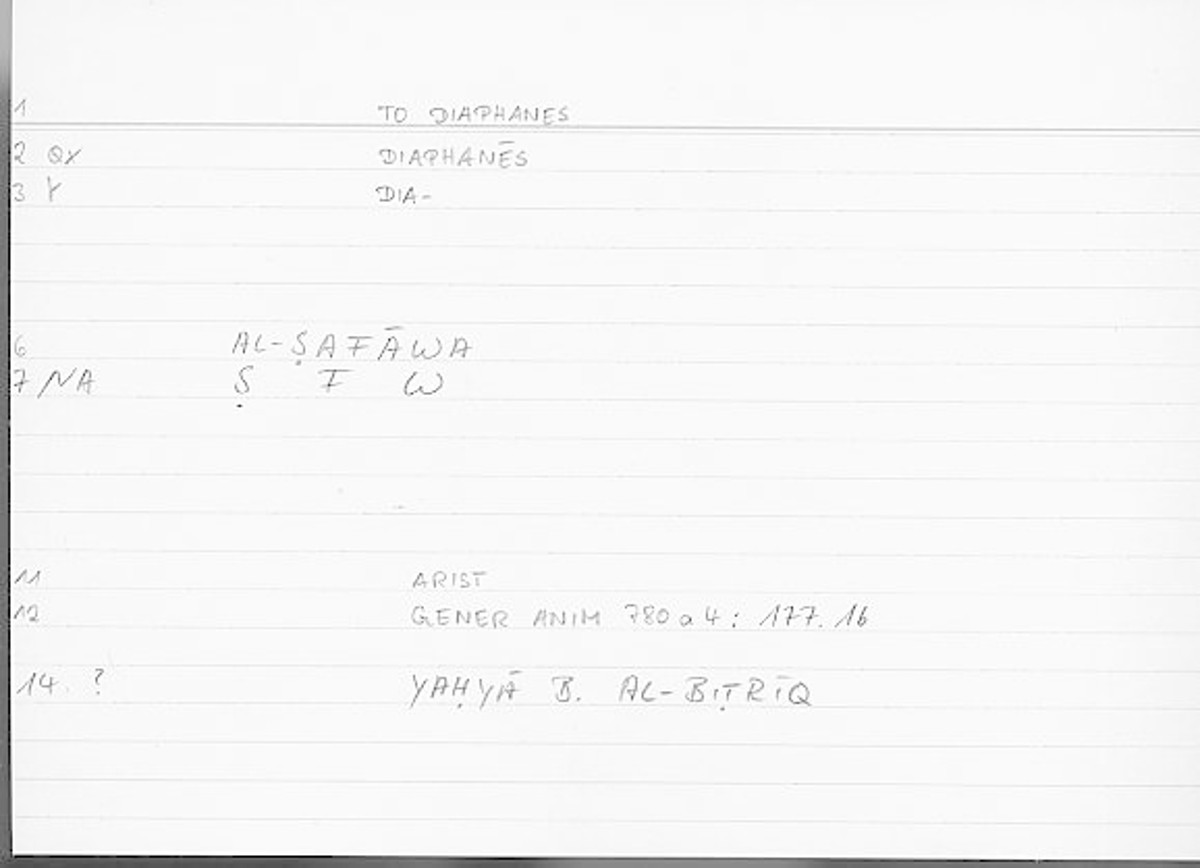 1 TO DIAPHANES
2 QY DIAPHANĒS
3 Y DIA-
6 AL-ṢAFĀWA
7 NA Ṣ F W
11 ARIST
12 GENER ANIM 780 a 4 : 177. 16
14. ? YAḤYĀ B. AL-BIṬRĪQ